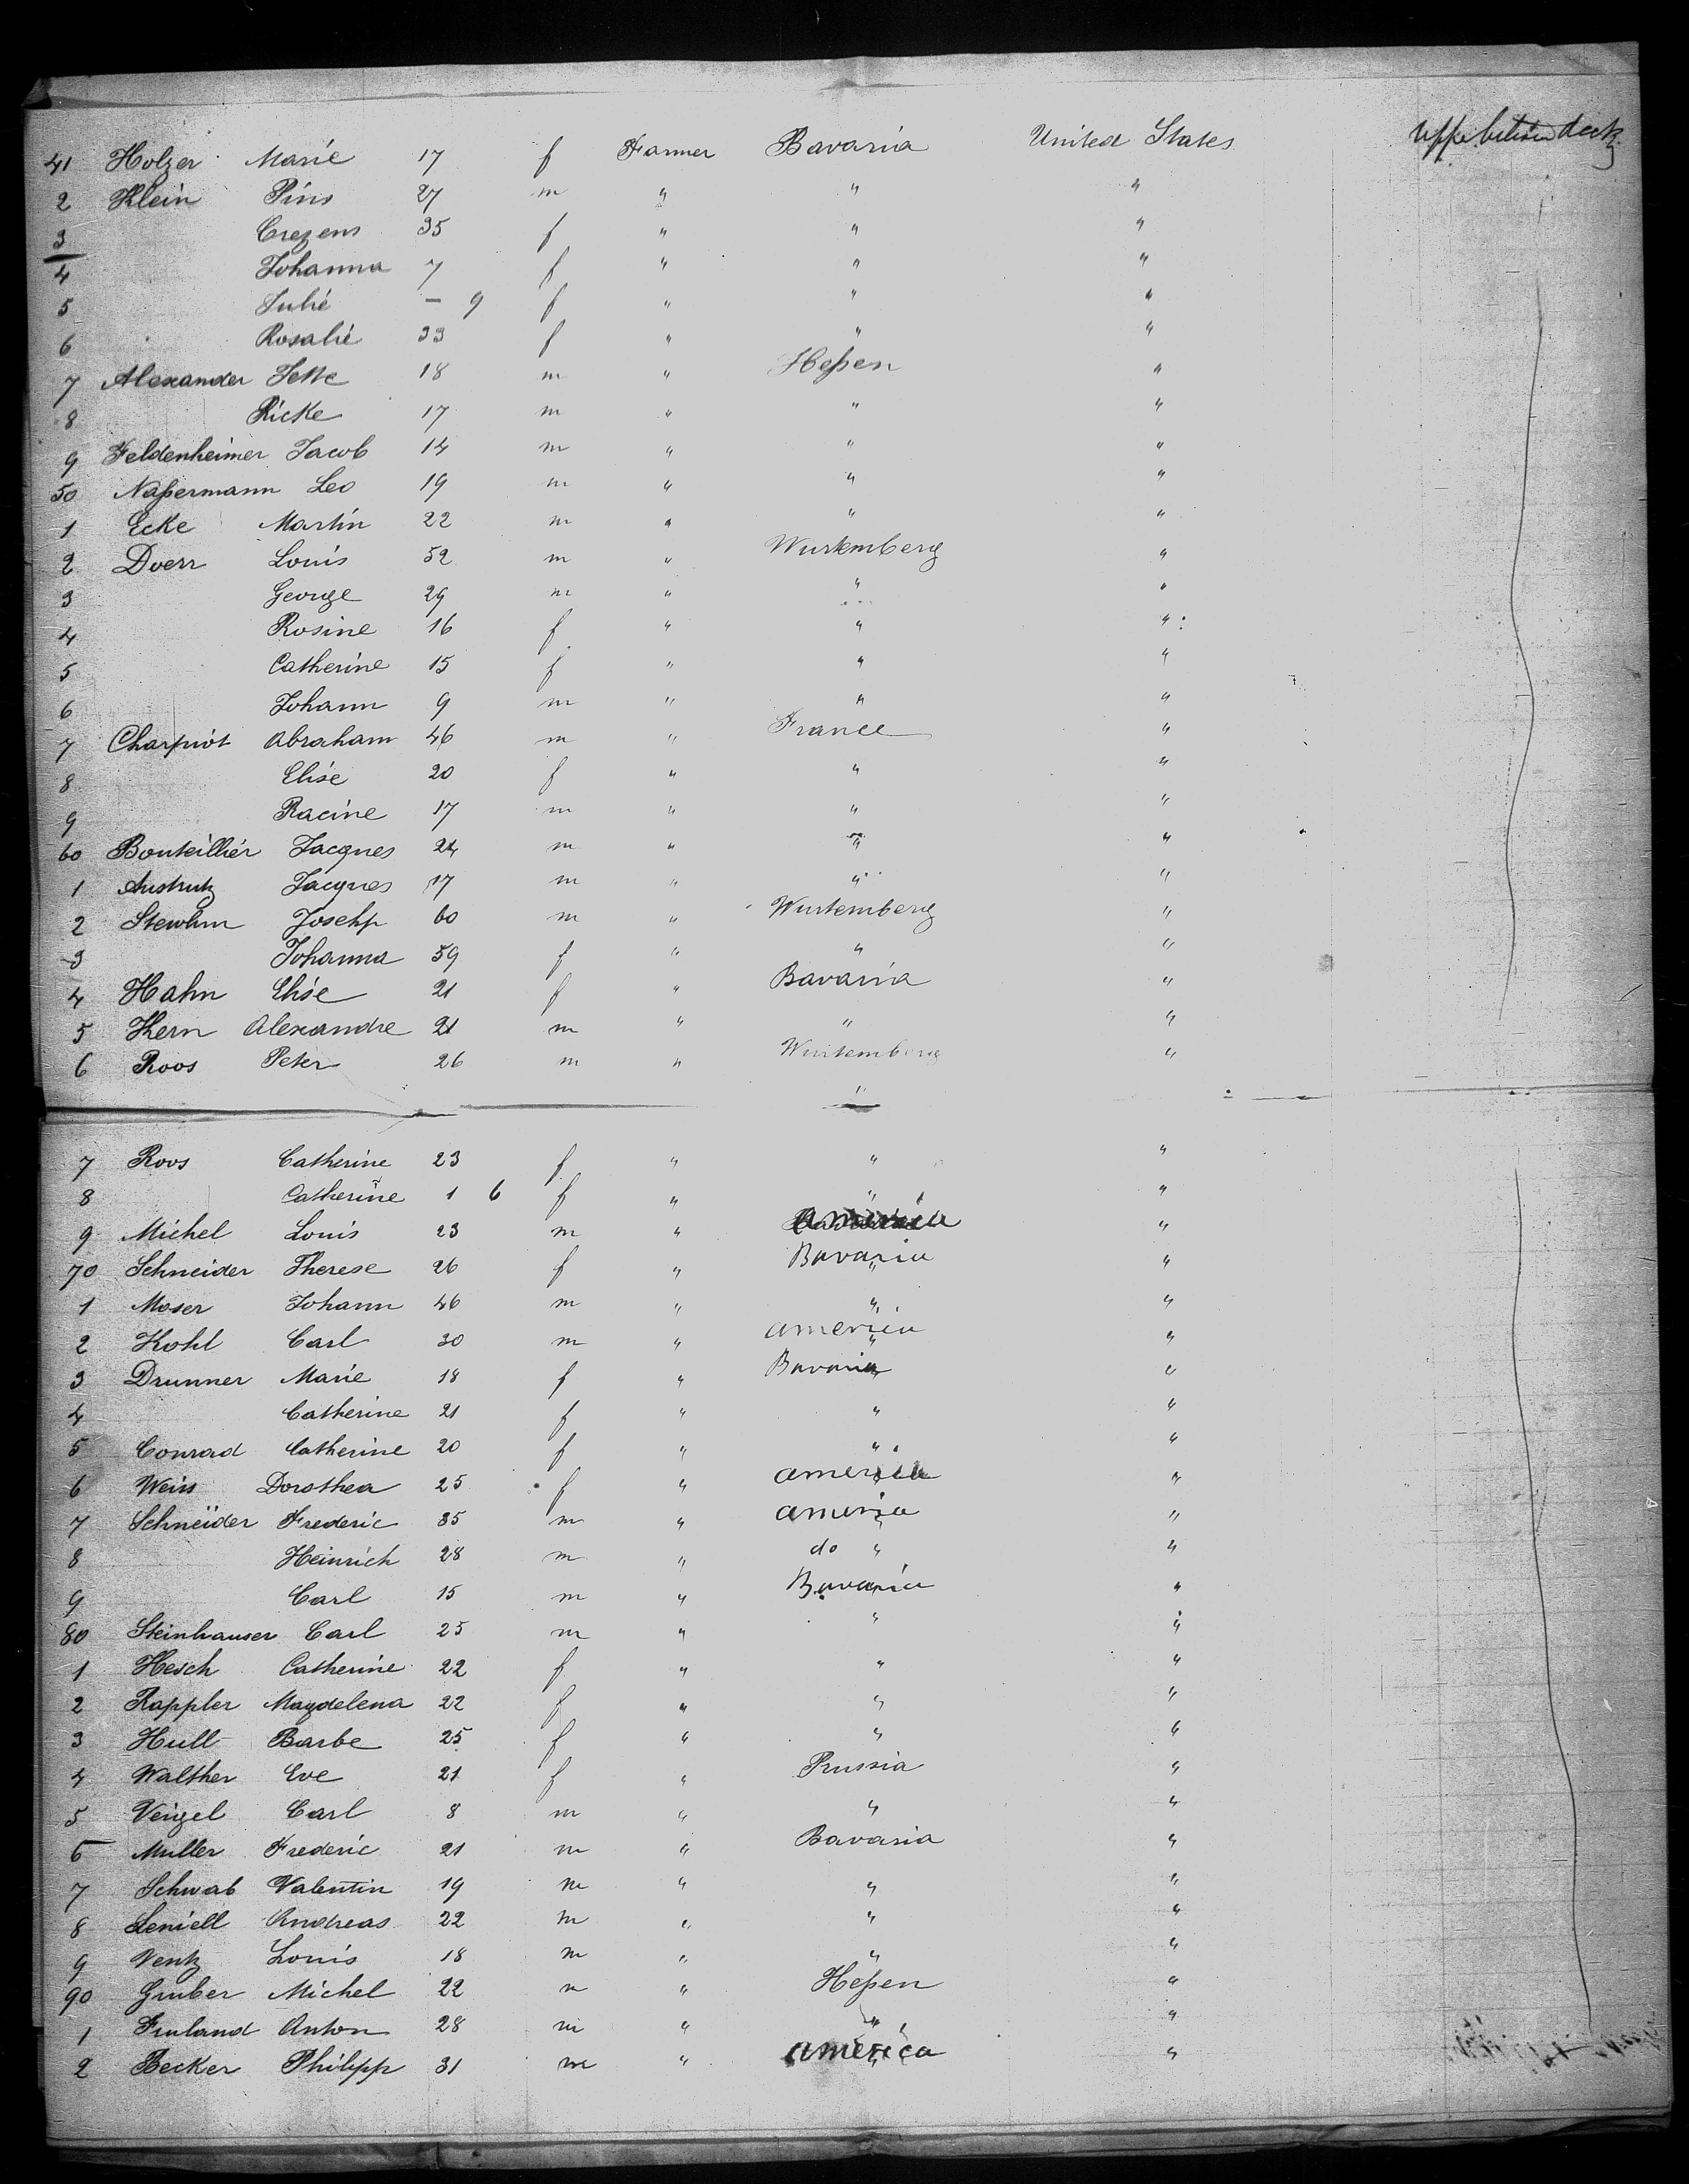 41 Holzer Marie 17 f Farmer Bavaria United States Upper between deck
2 Klein Pins 27 m " " "
3 Crezens 35 f " " "
4 Johanna 7 f " " "
5 Julie – 9 f " " "
6 Rosalie 33 f " " "
7 Alexander Jette 18 m " Heßen "
8 Ricke 17 m " " "
9 Feldenheimer Jacob 14 m " " "
50 Naßermann Leo 19 m " " "
1 Ecke Martin 22 m " " "
2 Doerr Louis 52 m " Wurtemberg "
3 George 29 m " " "
4 Rosine 16 f " " "
5 Catherine 15 f " " "
6 Johann 9 m " " "
7 Charpiot Abraham 46 m " France "
8 Elise 20 f " " "
9 Racine 17 m " " "
60 Bouteillier Jacques 24 m " " "
1 Jacques 17 m " " "
2 Josehp 60 m " Wurtemberg "
3 Johanna 59 f " " "
4 Hahn Elise 21 f " Bavaria "
5 Kern Alexandre 21 m " " "
6 Roos Peter 26 m " Wurtemberg "
"
7 Roos Catherine 23 f " " "
8 Catherine 1 6 f " " "
9 Michel Louis 23 m " america "
70 Schneider Therese 26 f " Bavaria "
1 Moser Johann 46 m " " "
2 Kohl Carl 30 m " america "
3 Drunner Marie 18 f " Bavaria "
4 Catherine 21 f " " "
5 Conrad Catherine 20 f " " "
6 Weiss Dorothea 25 f " america "
7 Schneider Frederic 35 m " america "
8 Heinrich 28 m " do "
9 Carl 15 m " Bavaria "
80 Steinhauser Carl 25 m " " "
1 Hesch Catherine 22 f " " "
2 Rappler Magdelena 22 f " " "
3 Hull Barbe 25 f " " "
4 Walther Eve 21 f " Prussia "
5 Veigel Carl 8 m " " "
6 Muller Frederic 21 m " Bavaria "
7 Schwab Valentin 19 m " " "
8 Leniell Andreas 22 m " " "
9 Ventz Louis 18 m " " "
90 Gruber Michel 22 m " Heßen "
1 Fruland Anton 28 m " " "
2 Becker Philipp 31 m " america "